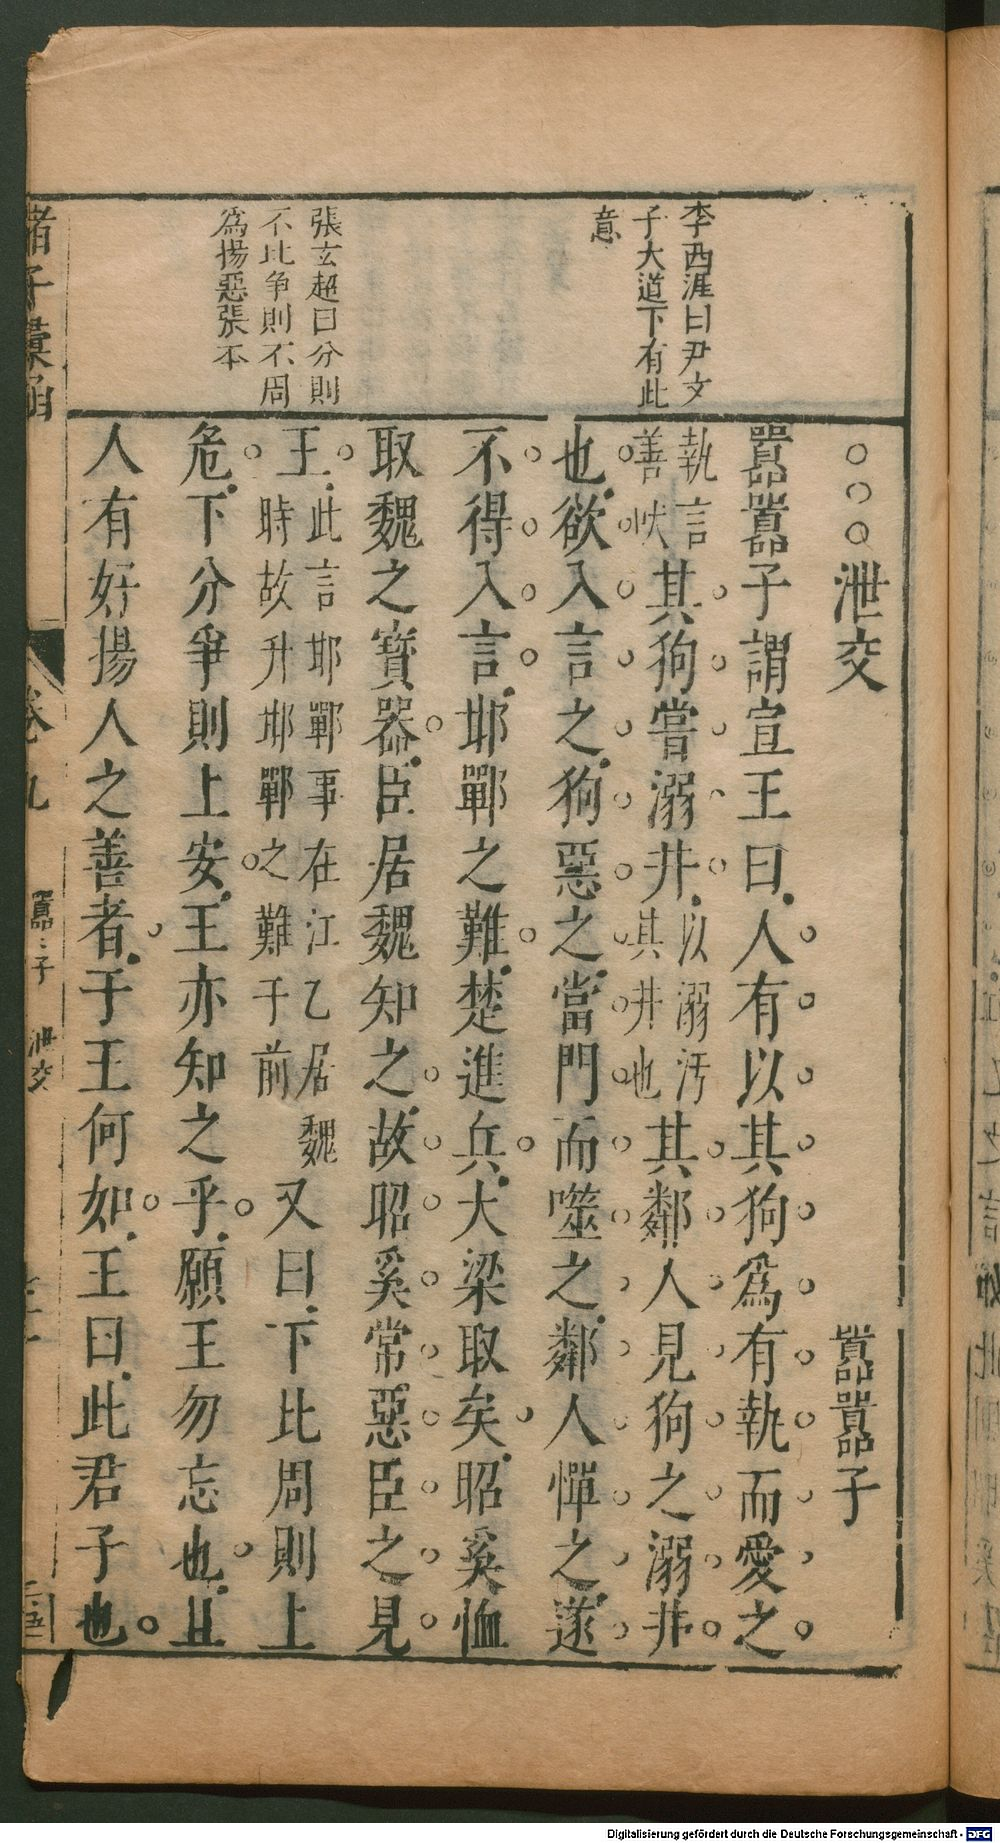 李西涯曰尹文
子大道下有此
意
張玄超曰分則
不比争則不周
為揚惡張本
泄交
嚚嚚子
嚚嚚子謂宣王曰人有以其狗為有執而愛之
執言
善吠
其狗嘗溺井
以溺汚
其井也
其鄰人見狗之溺井
也欲入言之狗惡之當門而噬之鄰人憚之遂
不得入言邯鄲之難楚進兵大梁取矣昭奚恤
取魏之寶器臣居魏知之故昭奚常惡臣之見
王
此言邯鄲事在江乙居魏
時故升邯鄲之難于前
又曰下比周則上
危下分爭則上安王亦知之乎願王勿忘也且
人有好揚人之善者于王何如王曰此君子也
諸子彙函
卷九
嚚〻子
泄交
Digitalisierung gefördert durch die Deutsche Forschungsgemeinschaft - DFG